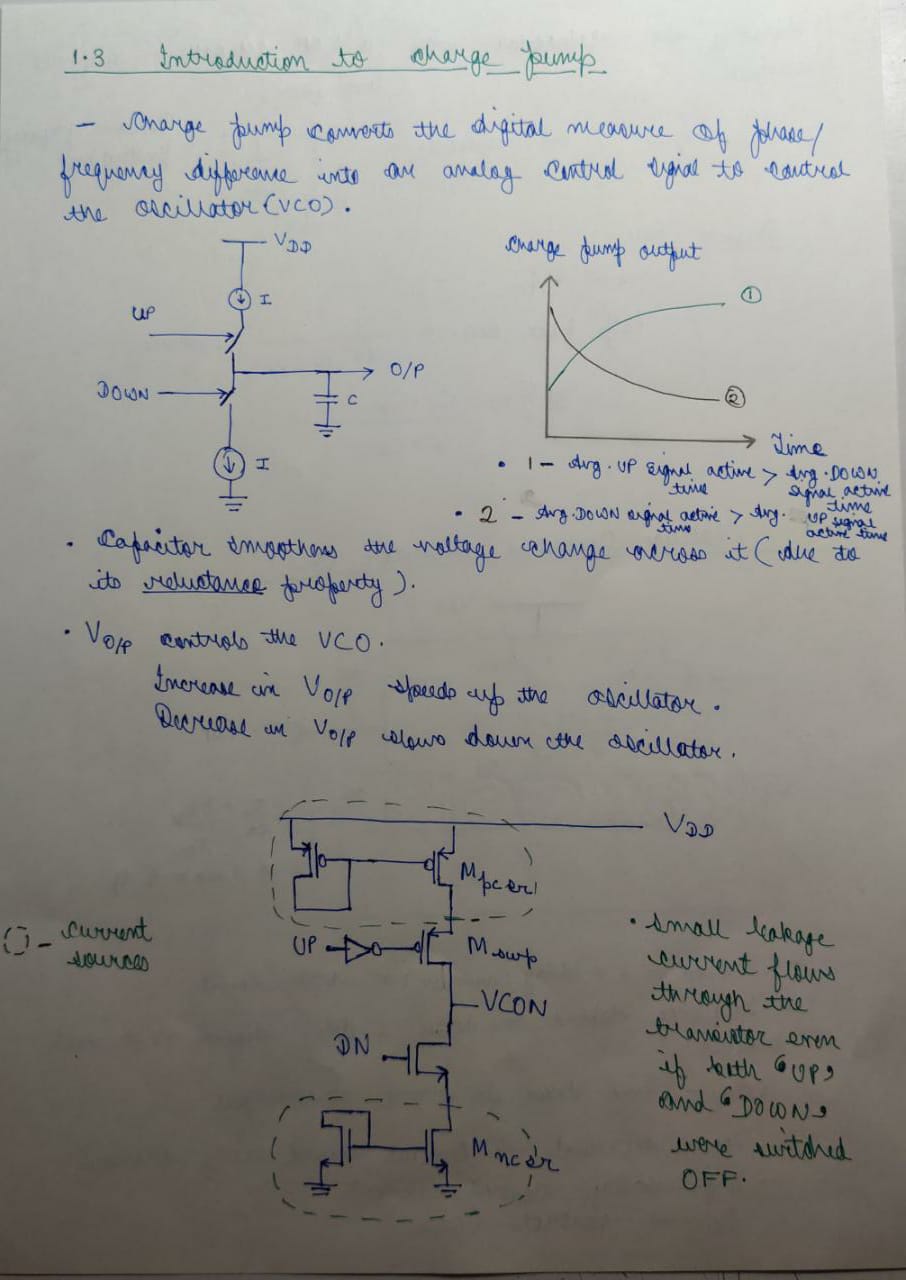 1.3 Introduction to charge pump
- Charge pump converts the digital measure of phase/
frequency difference into an analog control signal to control
the oscillator (VCO).
VDD
I
UP
O/P
DOWN
C
I
Charge pump output
1
2
Time
• 1 - Avg. UP signal active time > Avg. DOWN signal active time
• 2 - Avg. DOWN signal active time > Avg. UP signal active time
• Capacitor smoothens the voltage change across it (due to
its reluctance property).
• VO/P controls the VCO.
Increase in VO/P speeds up the oscillator.
Decrease in VO/P slows down the oscillator.
VDD
Mpcsr
- current
sources
UP
Mswp
VCON
DN
Mncsr
• Small leakage
current flows
through the
transistor even
if both 'UP'
and 'DOWN'
were switched
OFF.